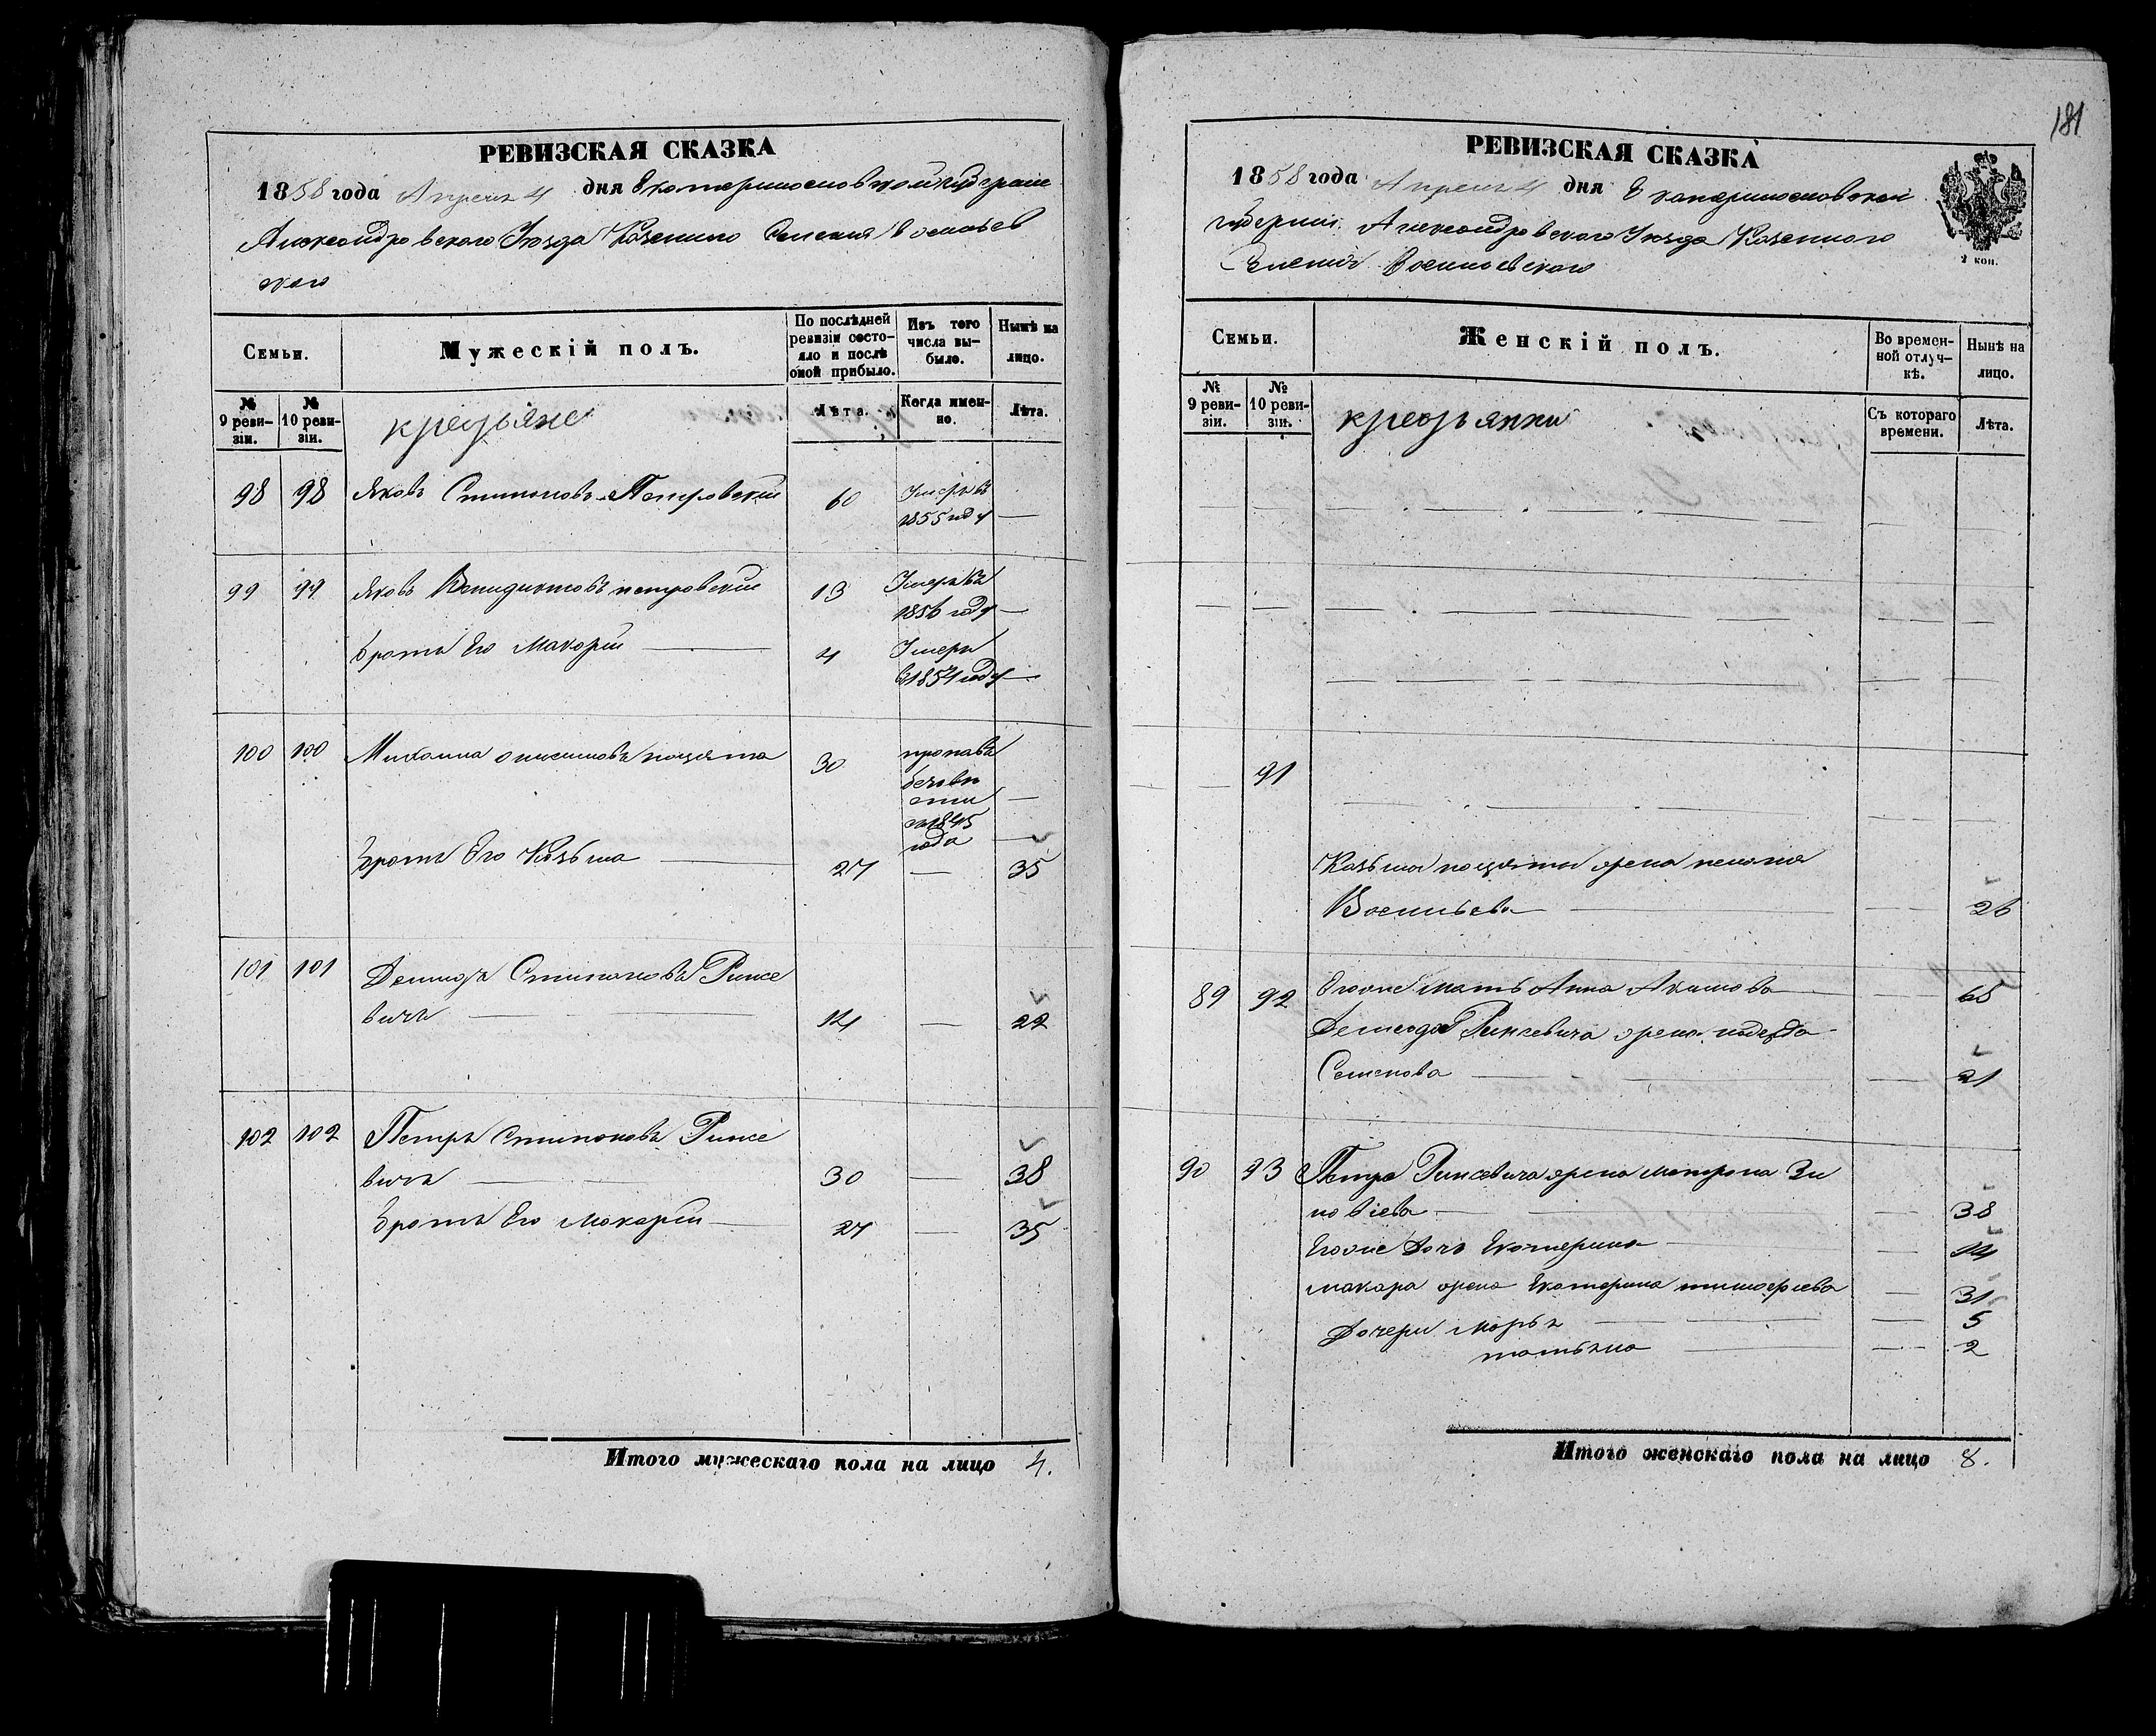 181
РЕВИЗСКАЯ СКАЗКА
1858 года Апреля 4 дня Екатеринославской Губернии
Александровского Уезда Казенного Селения Васильев
ского
Семьи.
Мужескій полъ.
По послѣдней ревизіи состояло и послѣ оной прибыло.
Изъ того числа выбыло.
Нынѣ на лицо.
№ 9 ревизіи.
№ 10 ревизіи.
крестьяне
Лѣта.
Когда именно.
Лѣта.
98 98 Яковъ Степановъ Петровский 60 Умеръ въ
1855 году —
99 99 Яковъ Венидиктовъ петровский 13 Умеръ въ
1856 году —
братъ Его Макарий — 4 Умеръ
в 1854 году —
100 100 Михаила онисимовъ 30 пропавъ
безвѣ
сти —
съ 1845
года —
братъ Его Козьма — 27 — 35
101 101 Демидъ Степановъ Ринке
вичъ — 14 — 22
102 102 Петръ Степановъ Ринке
вичъ — 30 — 38
братъ Его Макарий — 27 — 35
Итого мужескаго пола на лицо 4.
РЕВИЗСКАЯ СКАЗКА
1858 года Апреля 4 дня Екатеринославской
губернии Александровского Уезда Казенного
Селения Васильевского
2 коп.
Семьи.
Женскій полъ.
Во временной отлучкѣ.
Нынѣ на лицо.
№ 9 ревизіи.
№ 10 ревизіи.
крестьянки
Съ котораго времени.
Лѣта.
91
Козьмы жена
Васильева — — 26
89 92 Егоже мать Анна Акимова — — 65
Демида Ринкевича жена
Семенова — — 21
90 93 Петра Ринкевича жена матрона Зи
новіева — — 38
Егоже дочь Екатерина — — 14
макара жена Екатерина тимофеева — 31
Дочери Марья — — 5
татьяна — — 2
Итого женскаго пола на лицо 8.